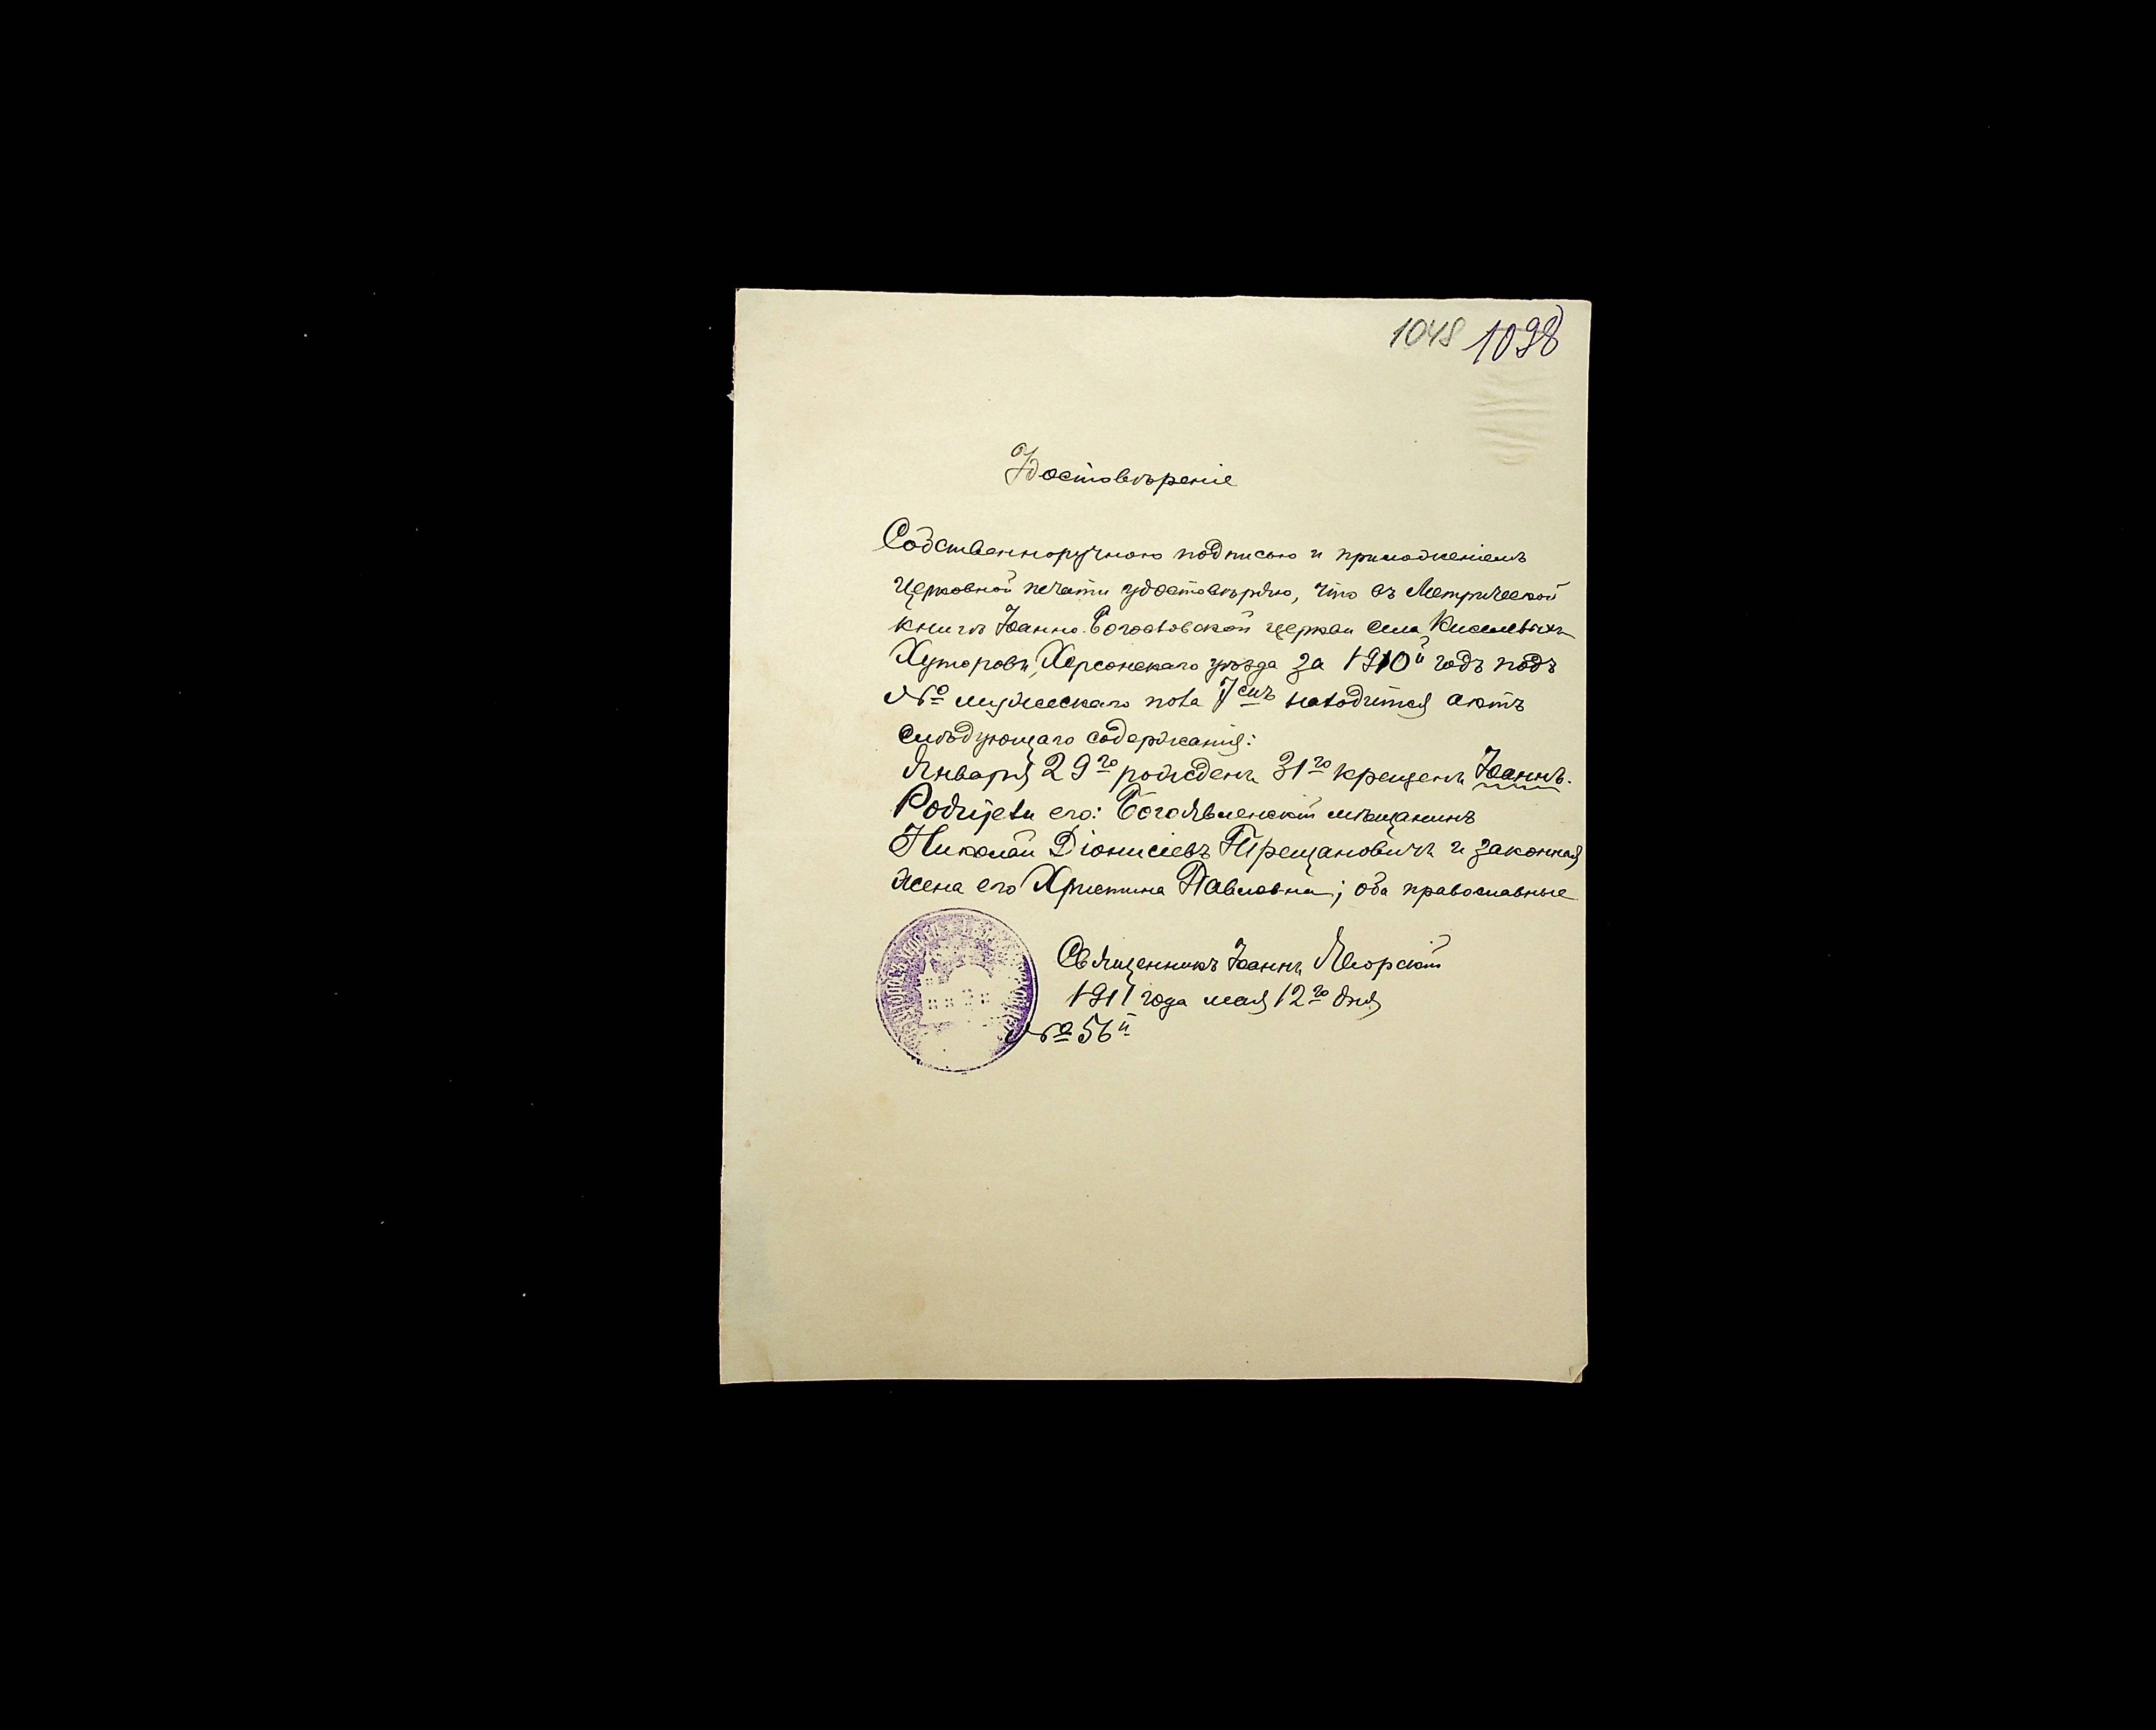 1048 1098
Удостовѣреніе
Собственноручною подписью и приложеніемъ
Церковной печати удостовѣряю, что въ Метрической
книгѣ Іоанно-Богословской церкви села Киселевыхъ
Хуторовъ, Херсонскаго уѣзда за 1910й годъ подъ
№ мужескаго пола 7емъ находится актъ
слѣдующаго содержанія:
Января 29го рожденъ 31го крещенъ Іоаннъ.
Родители его: Богоявленскій мѣщанинъ
Николай Діонисіевъ Трещановичъ и законная
жена его Христина Павловна; оба православные
Священникъ Іоаннъ
1911 года мая 12го дня
№ 56й